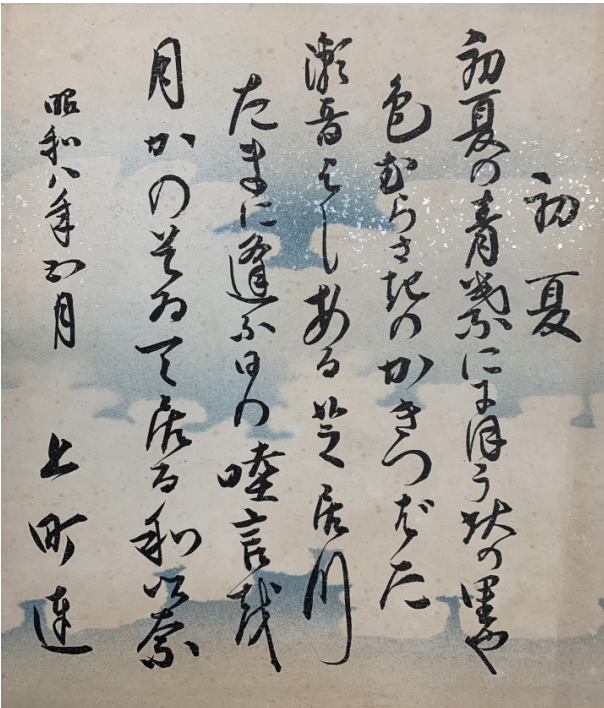 初夏
初夏の青葉ににほう の里や
色むらさ起のかきつばた
瀬音 しある芝居川
たまに逢ふ日の睦言越
月かのそゐて居る和以奈
昭和八年五月 上町連